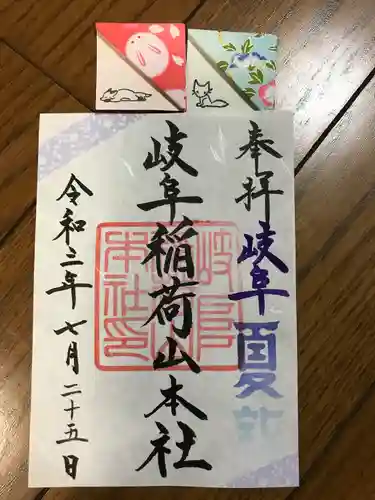 奉拝
岐阜
夏詣
岐阜稲荷山本社
令和三年七月二十五日